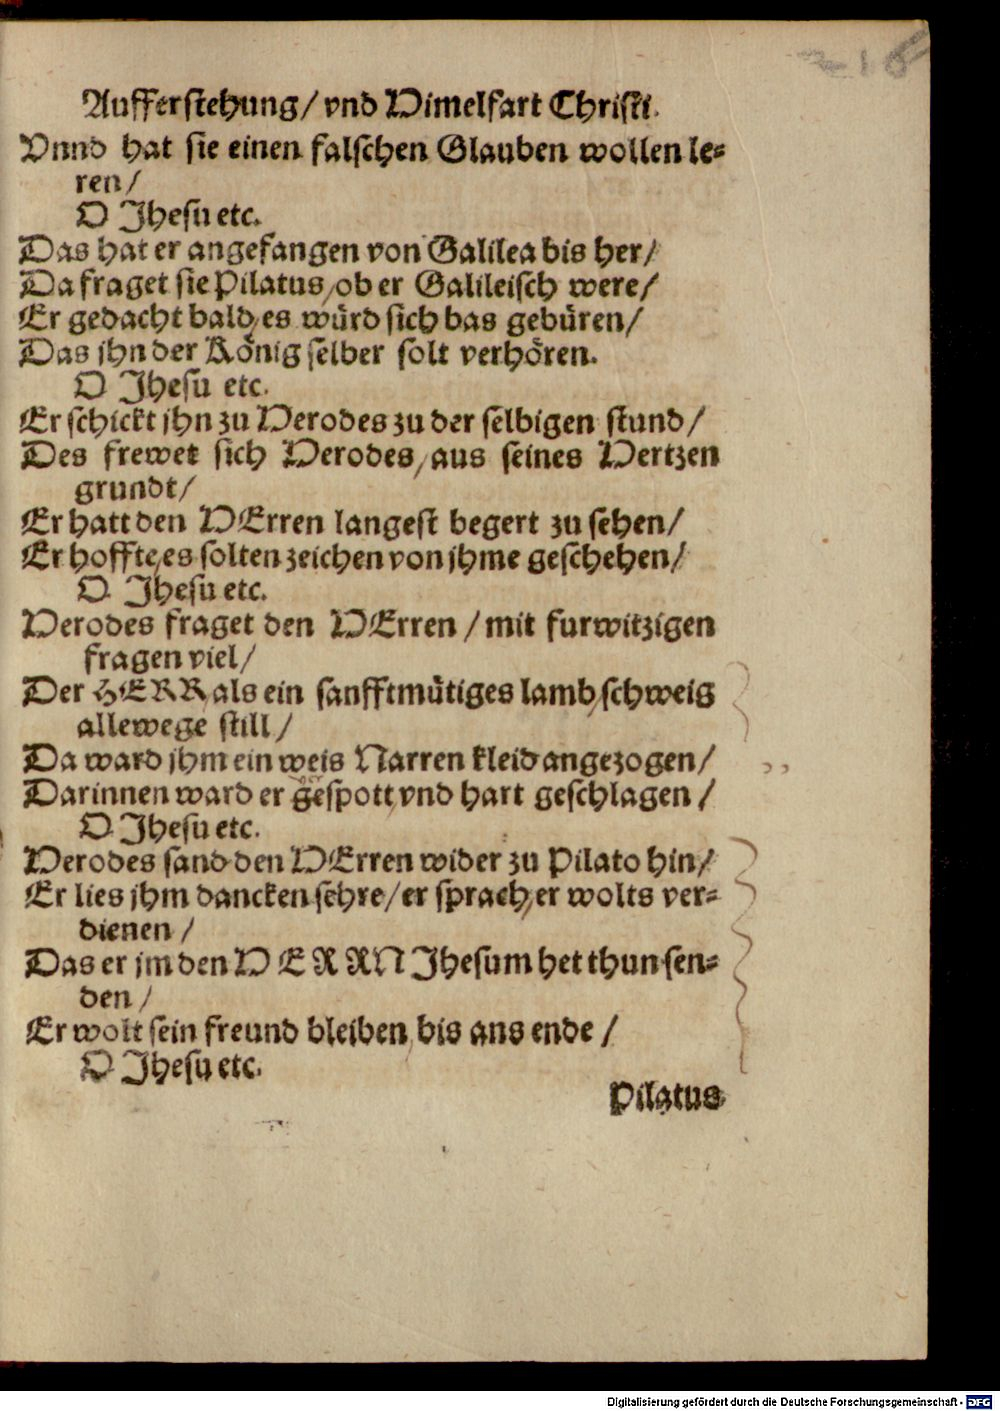 216
Aufferstehung/ vnd Himelfart Christi.
Vnnd hat sie einen falschen Glauben wollen le-
ren/
O Jhesu etc.
Das hat er angefangen von Galilea bis her/
Da fraget sie Pilatus/ ob er Galileisch were/
Er gedacht bald/ es würd sich bas gebüren/
Das jhn der König selber solt verhören.
O Jhesu etc.
Er schickt jhn zu Herodes zu der selbigen stund/
Des frewet sich Herodes/ aus seines Hertzen
grundt/
Er hatt den HErren langest begert zu sehen/
Er hoffte/ es solten zeichen von jhme geschehen/
O Jhesu etc.
Herodes fraget den HErren/ mit furwitzigen
fragen viel/
Der HERR als ein sanfftmütiges lamb/ schweig
allewege still/
Da ward jhm ein weis Narren kleid angezogen/
Darinnen ward er gespott/ vnd hart geschlagen/
O Jhesu etc.
Herodes sand den HErren wider zu Pilato hin/
Er lies jhm dancken sehre/ er sprach/ er wolts ver-
dienen/
Das er jm den HERRN Jhesum het thun sen-
den/
Er wolt sein freund bleiben/ bis ans ende/
O Jhesu etc.
Pilatus
Digitalisierung gefördert durch die Deutsche Forschungsgemeinschaft - DFG